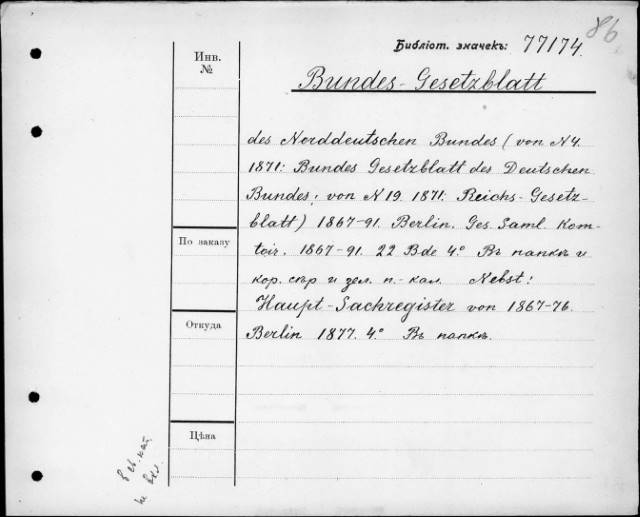 86
Библіот. значекъ: 77174.
Инв.
№
Bundes-Gesetzblatt
des Norddeutschen Bundes (von N 4.
1871: Bundes Gesetzblatt des Deutschen
Bundes; von N 19. 1871: Reichs-Gesetz-
blatt) 1867-91. Berlin. Ges. Saml. Kom-
toir. 1867-91. 22 Bde 4.° Въ папкѣ и
По заказу
кор. сѣр и зел. п.-кал. Nebst:
Haupt-Sachregister von 1867-76.
Откуда
Berlin 1877. 4.° Въ папкѣ.
Цѣна